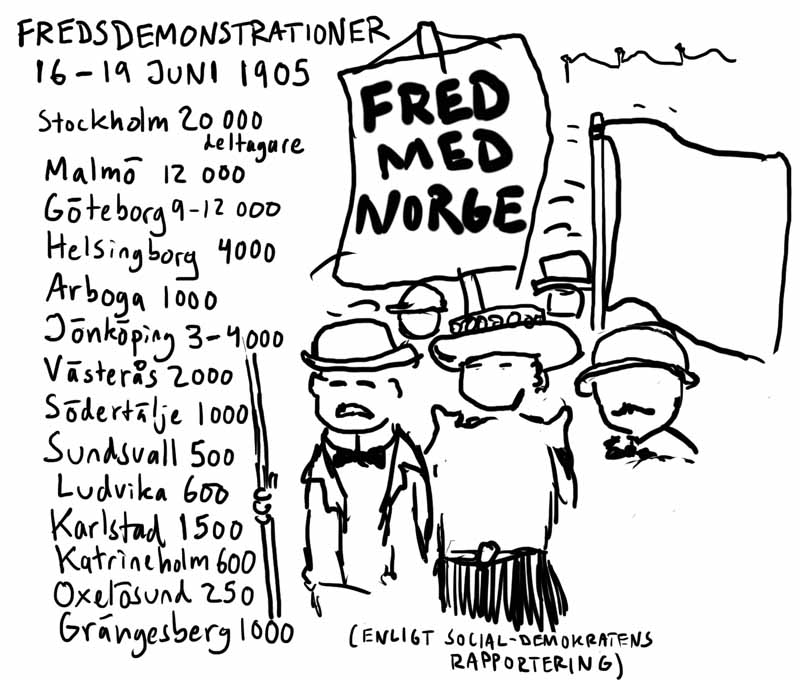 FREDSDEMONSTRATIONER
16-19 JUNI 1905
Stockholm 20 000
deltagare
Malmö 12 000
Göteborg 9-12 000
Helsingborg 4000
Arboga 1000
Jönköping 3-4000
Västerås 2000
Södertälje 1000
Sundsvall 500
Ludvika 600
Karlstad 1500
Katrineholm 600
Oxelösund 250
Grängesberg 1000
FRED
MED
NORGE
(ENLIGT SOCIAL-DEMOKRATENS
RAPPORTERING)